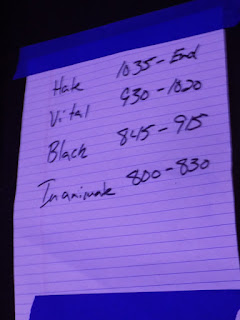 Hate 1035-End
Vital 930-1020
Black 845-915
Inanimate 800-830